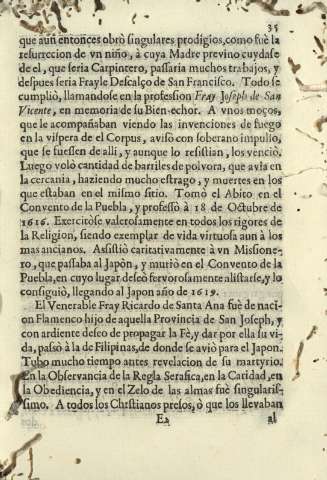 35
que aun entonces obrò singulares prodigios, como fuè la
resurreccion de vn niño, à cuya Madre previno cuydase
de el, que seria Carpintero, passaria muchos trabajos, y
despues seria Frayle Descalço de San Francisco. Todo se
cumpliò, llamandose en la profession Fray Joseph de San
Vicente, en memoria de su Bien-echor. A vnos moços,
que le acompañaban viendo las invenciones de fuego
en la vispera de el Corpus, avisò con soberano impulso,
que se fuessen de alli, y aunque lo resistian, los venciò.
Luego volò cantidad de barriles de polvora, que avia en
la cercania, haziendo mucho estrago, y muertes en los
que estaban en el mismo sitio. Tomò el Abito en el
Convento de la Puebla, y professò à 18 de Octubre de
1616. Exercitòse valerosamente en todos los rigores de
la Religion, siendo exemplar de vida virtuosa aun à los
mas ancianos. Asistiò caritativamente à vn Missione-
ro, que passaba al Japòn, y muriò en el Convento de la
Puebla, en cuyo lugar deseò fervorosamente alistarse, y lo
consiguiò, llegando al Japon año de 1619.
El Venerable Fray Ricardo de Santa Ana fuè de naci-
on Flamenco hijo de aquella Provincia de San Joseph, y
con ardiente deseo de propagar la Fè, y dar por ella su vi-
da, passò à la de Filipinas, de donde se aviò para el Japon.
Tubo mucho tiempo antes revelacion de su martyrio.
En la Observancia de la Regla Serafica, en la Caridad, en
la Obediencia, y en el Zelo de las almas fuè singularis-
simo. A todos los Christianos presos, ò que los llevaban
E2
al